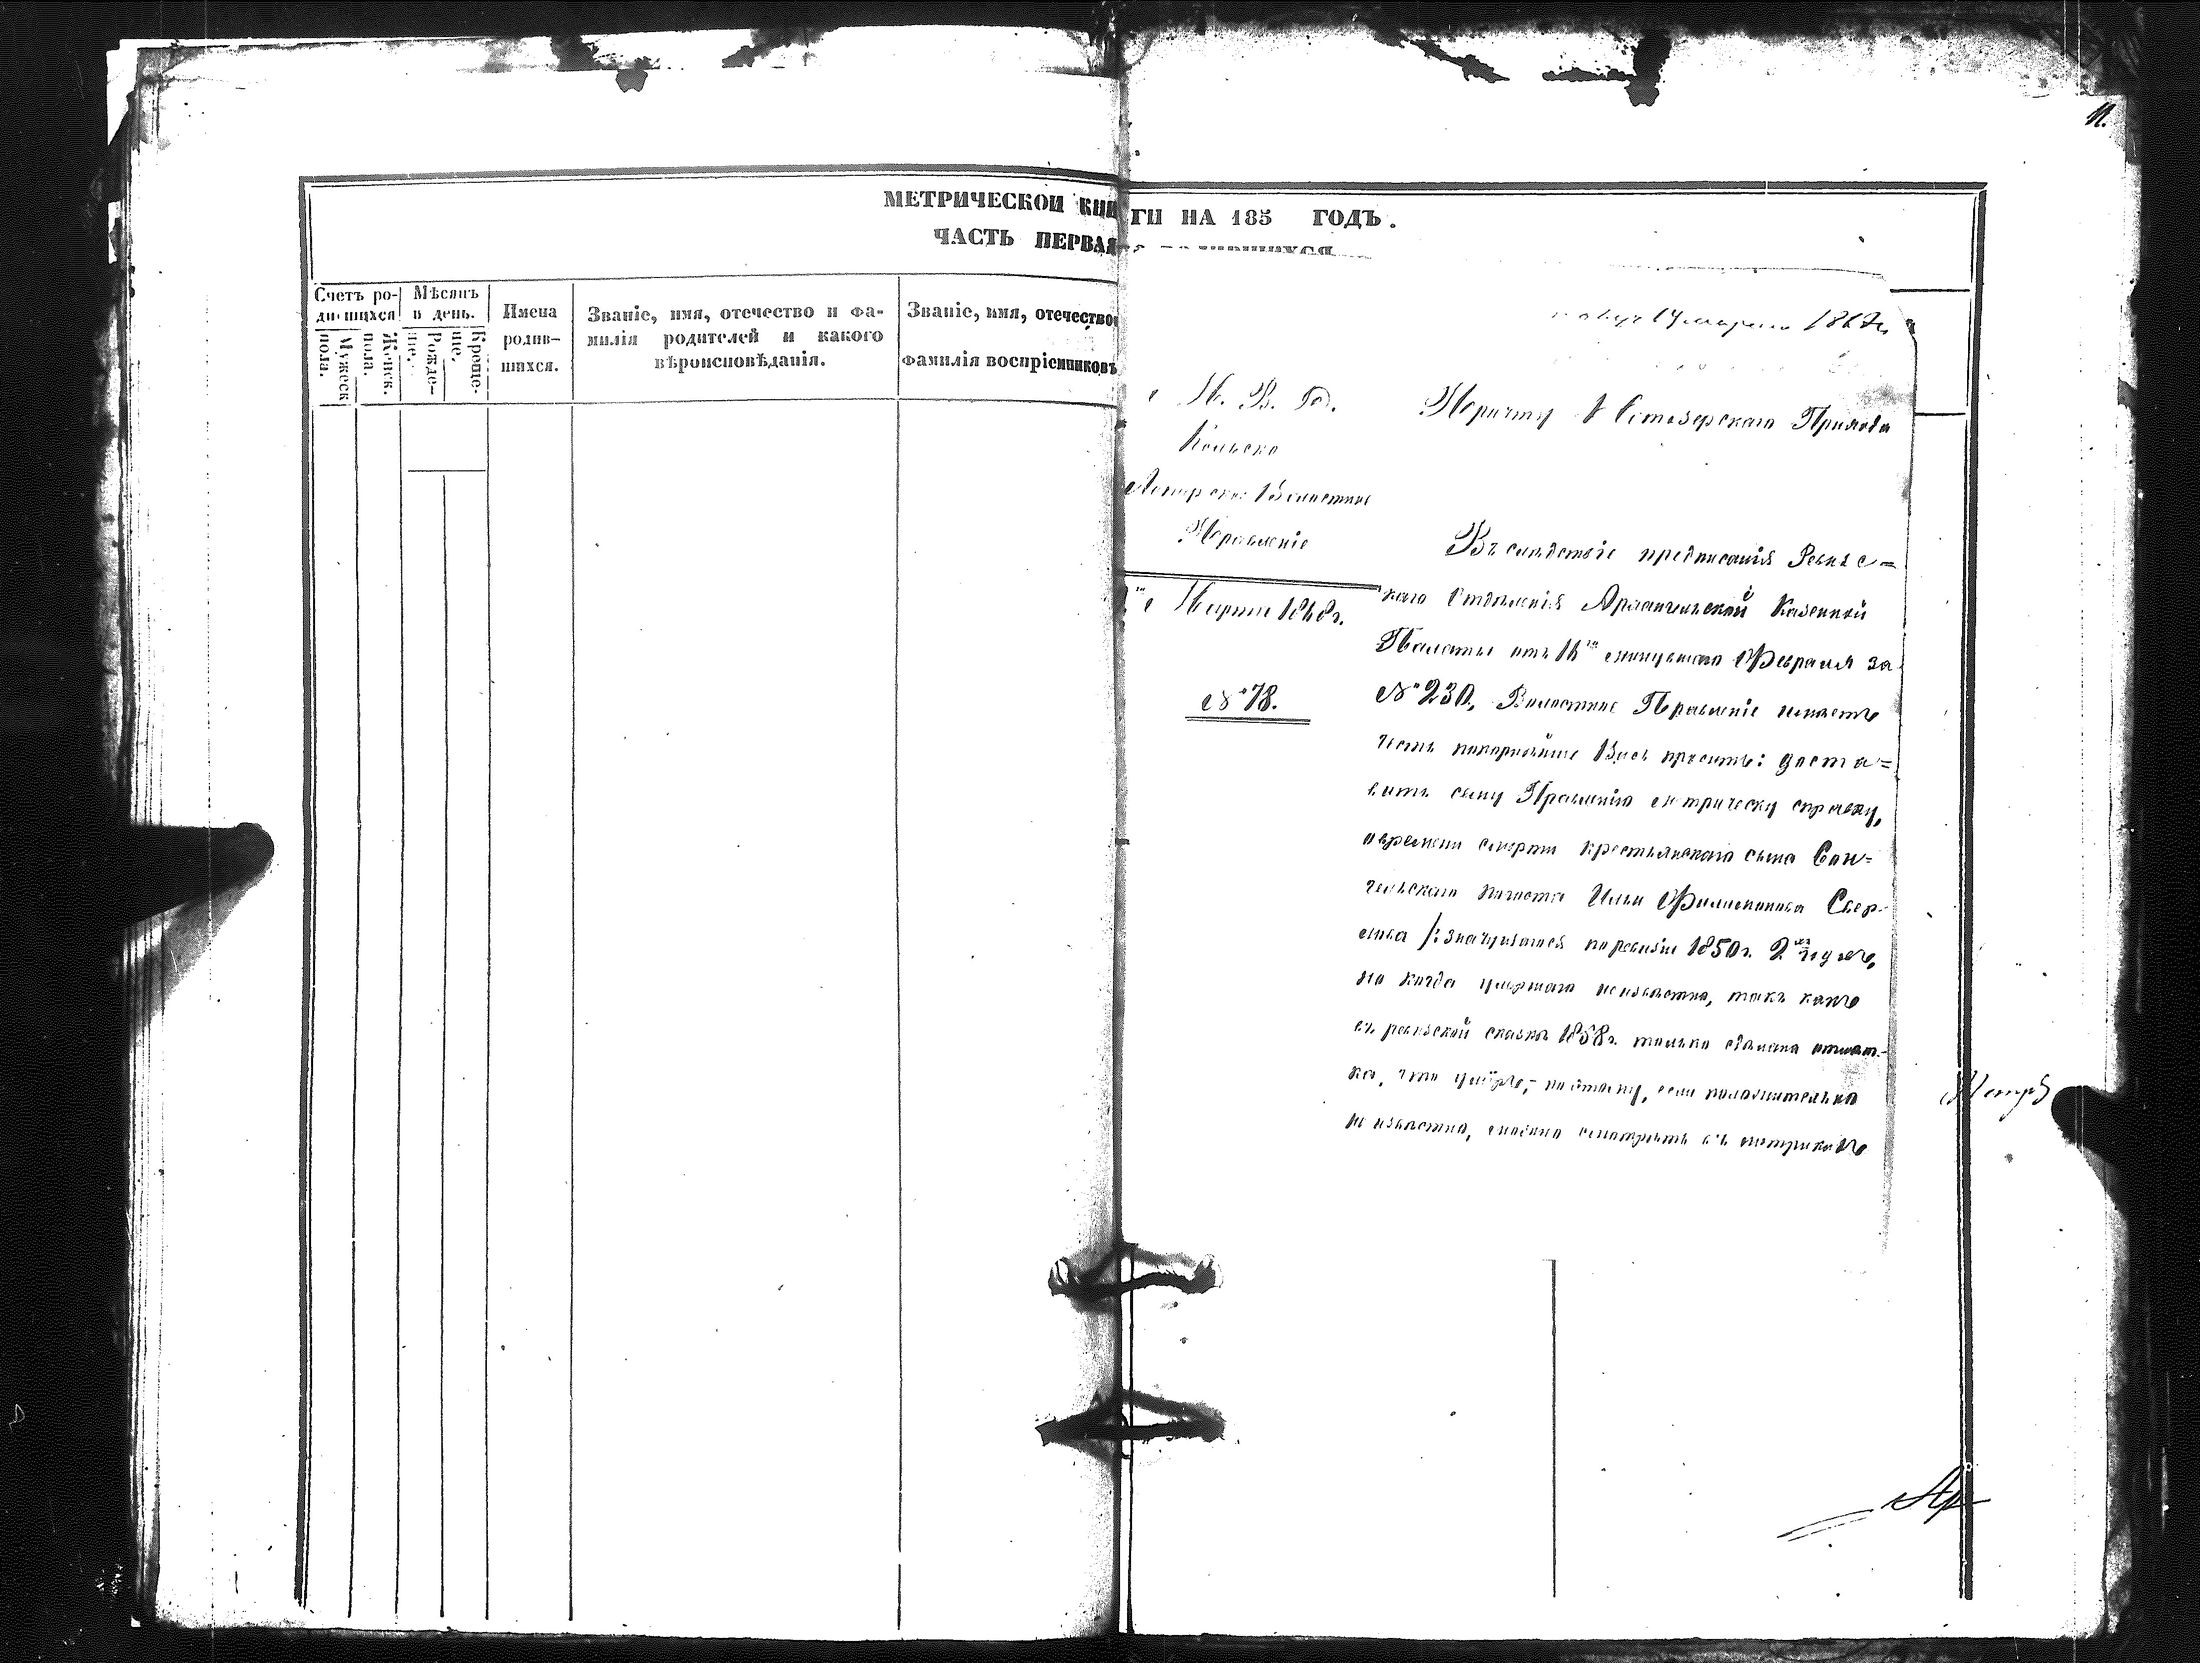 11.
МЕТРИЧЕСКОЙ КНИ
ГИ НА 185 ГОДЪ.
ЧАСТЬ ПЕРВАЯ
Счетъ ро-
дившихся
Мужеск
пола.
Женск.
пола.
Мѣсяцъ
и день.
Рожде-
ніе.
Креще-
ніе.
Имена
родив-
шихся.
Званіе, имя, отечество и фа-
милія родителей и какого
вѣроисповѣданія.
Званіе, имя, отечество
фамилія воспріемниковъ
марта 1868
М. В.
Кольско
Волостное
Правленіе
Марта 1868 г.
№ 78.
Причту Прихода
Въ слѣдствіе предписанія Ревис=
каго Отдѣленія Архангельской Казенной
Палаты отъ 16го минувшаго Февраля за
№ 230, Волостное Правленіе имѣетъ
честь покорнѣйше Васъ просить: доста=
вить сему Правленію метрическу справку,
о времени смерти крестьянскаго сына Сон=
гельскаго погоста Ильи Филиппова Свер-
лова /: значущагося по ревизіи 1850 г. 2хъ годъ,
но когда умершаго неизвѣстно, такъ какъ
въ ревизской сказкѣ 1858 г. только сдѣлана отмѣт-
ка, что умеръ; поэтому, если положительно
не извѣстно, смотрѣть въ метрикахъ